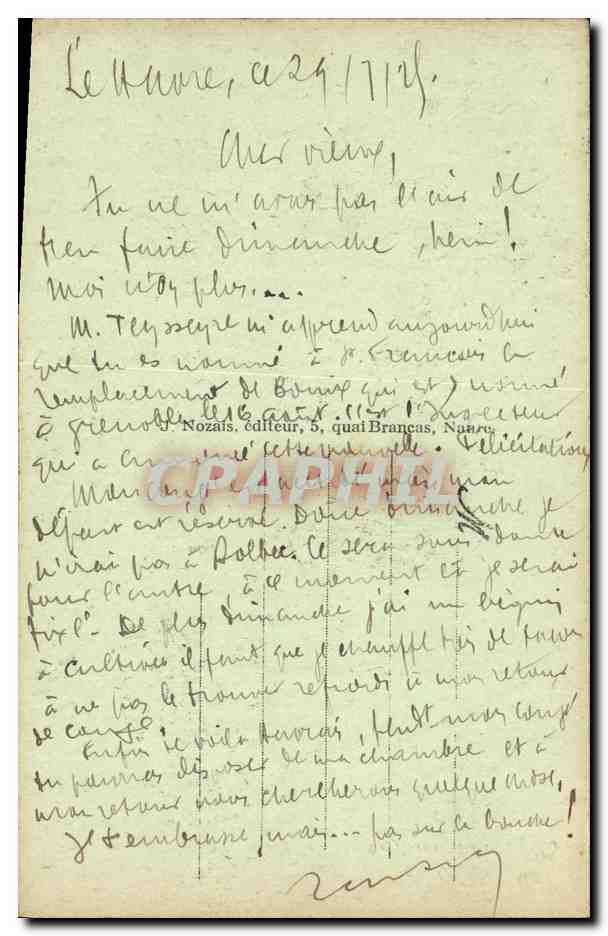 Le Havre, ce 29/7/25.
Cher vieux,
Tu ne m'avais pas l'air de
t'en faire dimanche, hein!
Moi non plus...
M. Teysseyre m'apprend aujourd'hui
que tu es nommé à St. François en
remplacement de Bouix qui est nommé
à Grenoble le 16 août. C'est l'Inspecteur
J. Nozais, éditeur, 5, quai Brancas, Nantes
qui a cette nouvelle. Félicitations
Mon congé mais mon
départ est réservé. Donc dimanche je
n'irai pas à Bolbec. Ce sera sans doute
pour l'autre, à ce moment là je serai
fixé. De plus dimanche j'ai un béguin
à cultiver il faut que je chauffe
à ne pas le trouver refroidi à mon retour
de congé.
Enfin te voilà havrais, pendt mon congé
tu pourras disposer de ma chambre et à
mon retour nous chercherons quelque chose.
Je t'embrasse, mais... pas sur la bouche!
CPAPHIL